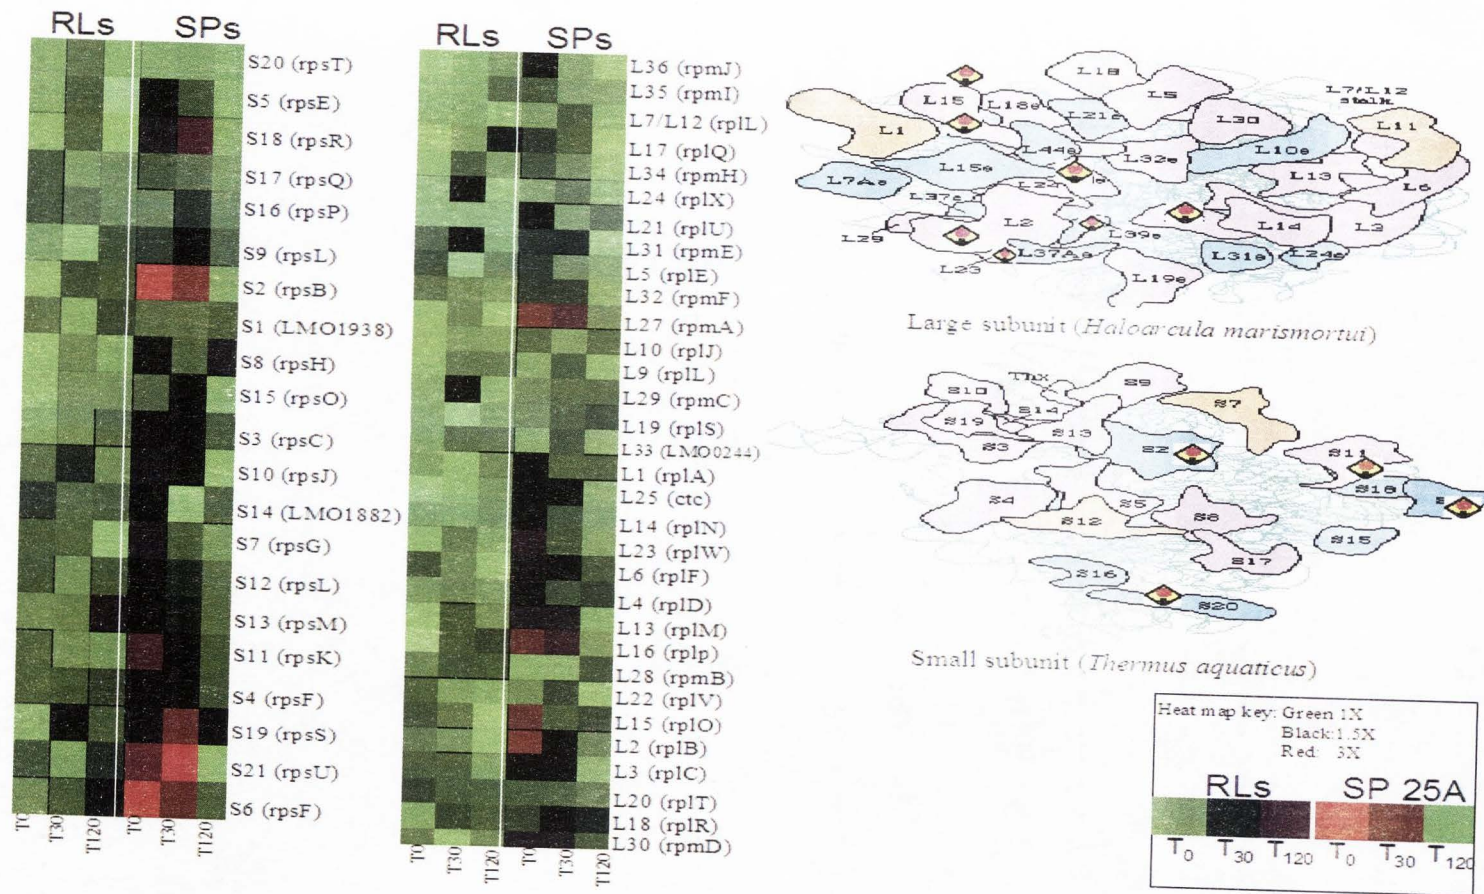 RLs SPs
S20 (rpsT)
S5 (rpsE)
S18 (rpsR)
S17 (rpsQ)
S16 (rpsP)
S9 (rpsL)
S2 (rpsB)
S1 (LMO1938)
S8 (rpsH)
S15 (rpsO)
S3 (rpsC)
S10 (rpsJ)
S14 (LMO1882)
S7 (rpsG)
S12 (rpsL)
S13 (rpsM)
S11 (rpsK)
S4 (rpsF)
S19 (rpsS)
S21 (rpsU)
S6 (rpsF)
T0 T30 T120 T0 T30 T120
RLs SPs
L36 (rpmJ)
L35 (rpmI)
L7/L12 (rplL)
L17 (rplQ)
L34 (rpmH)
L24 (rplX)
L21 (rplU)
L31 (rpmE)
L5 (rplE)
L32 (rpmF)
L27 (rpmA)
L10 (rplJ)
L9 (rplL)
L29 (rpmC)
L19 (rplS)
L33 (LMO0244)
L1 (rplA)
L25 (ctc)
L14 (rplN)
L23 (rplW)
L6 (rplF)
L4 (rplD)
L13 (rplM)
L16 (rplp)
L28 (rpmB)
L22 (rplV)
L15 (rplO)
L2 (rplB)
L3 (rplC)
L20 (rplT)
L18 (rplR)
L30 (rpmD)
T0 T30 T120 T0 T30 T120
L18
L5
L7/L12
stalk
L15
L18e
L21e
L30
L11
L1
L44e
L32e
L10e
L15e
L13
L6
L7Ae
L37e
L2
L14
L3
L29
L39e
L23
L37Ae
L31e
L24e
L19e
Large subunit (Haloarcula marismortui)
Thx
S9
S10
S14
S7
S19
S13
S3
S2
S11
S18
S4
S5
S12
S8
S15
S17
S16
S20
Small subunit (Thermus aquaticus)
Heat map key: Green 1X
Black:1.5X
Red: 3X
RLs SP 25A
T0 T30 T120 T0 T30 T120